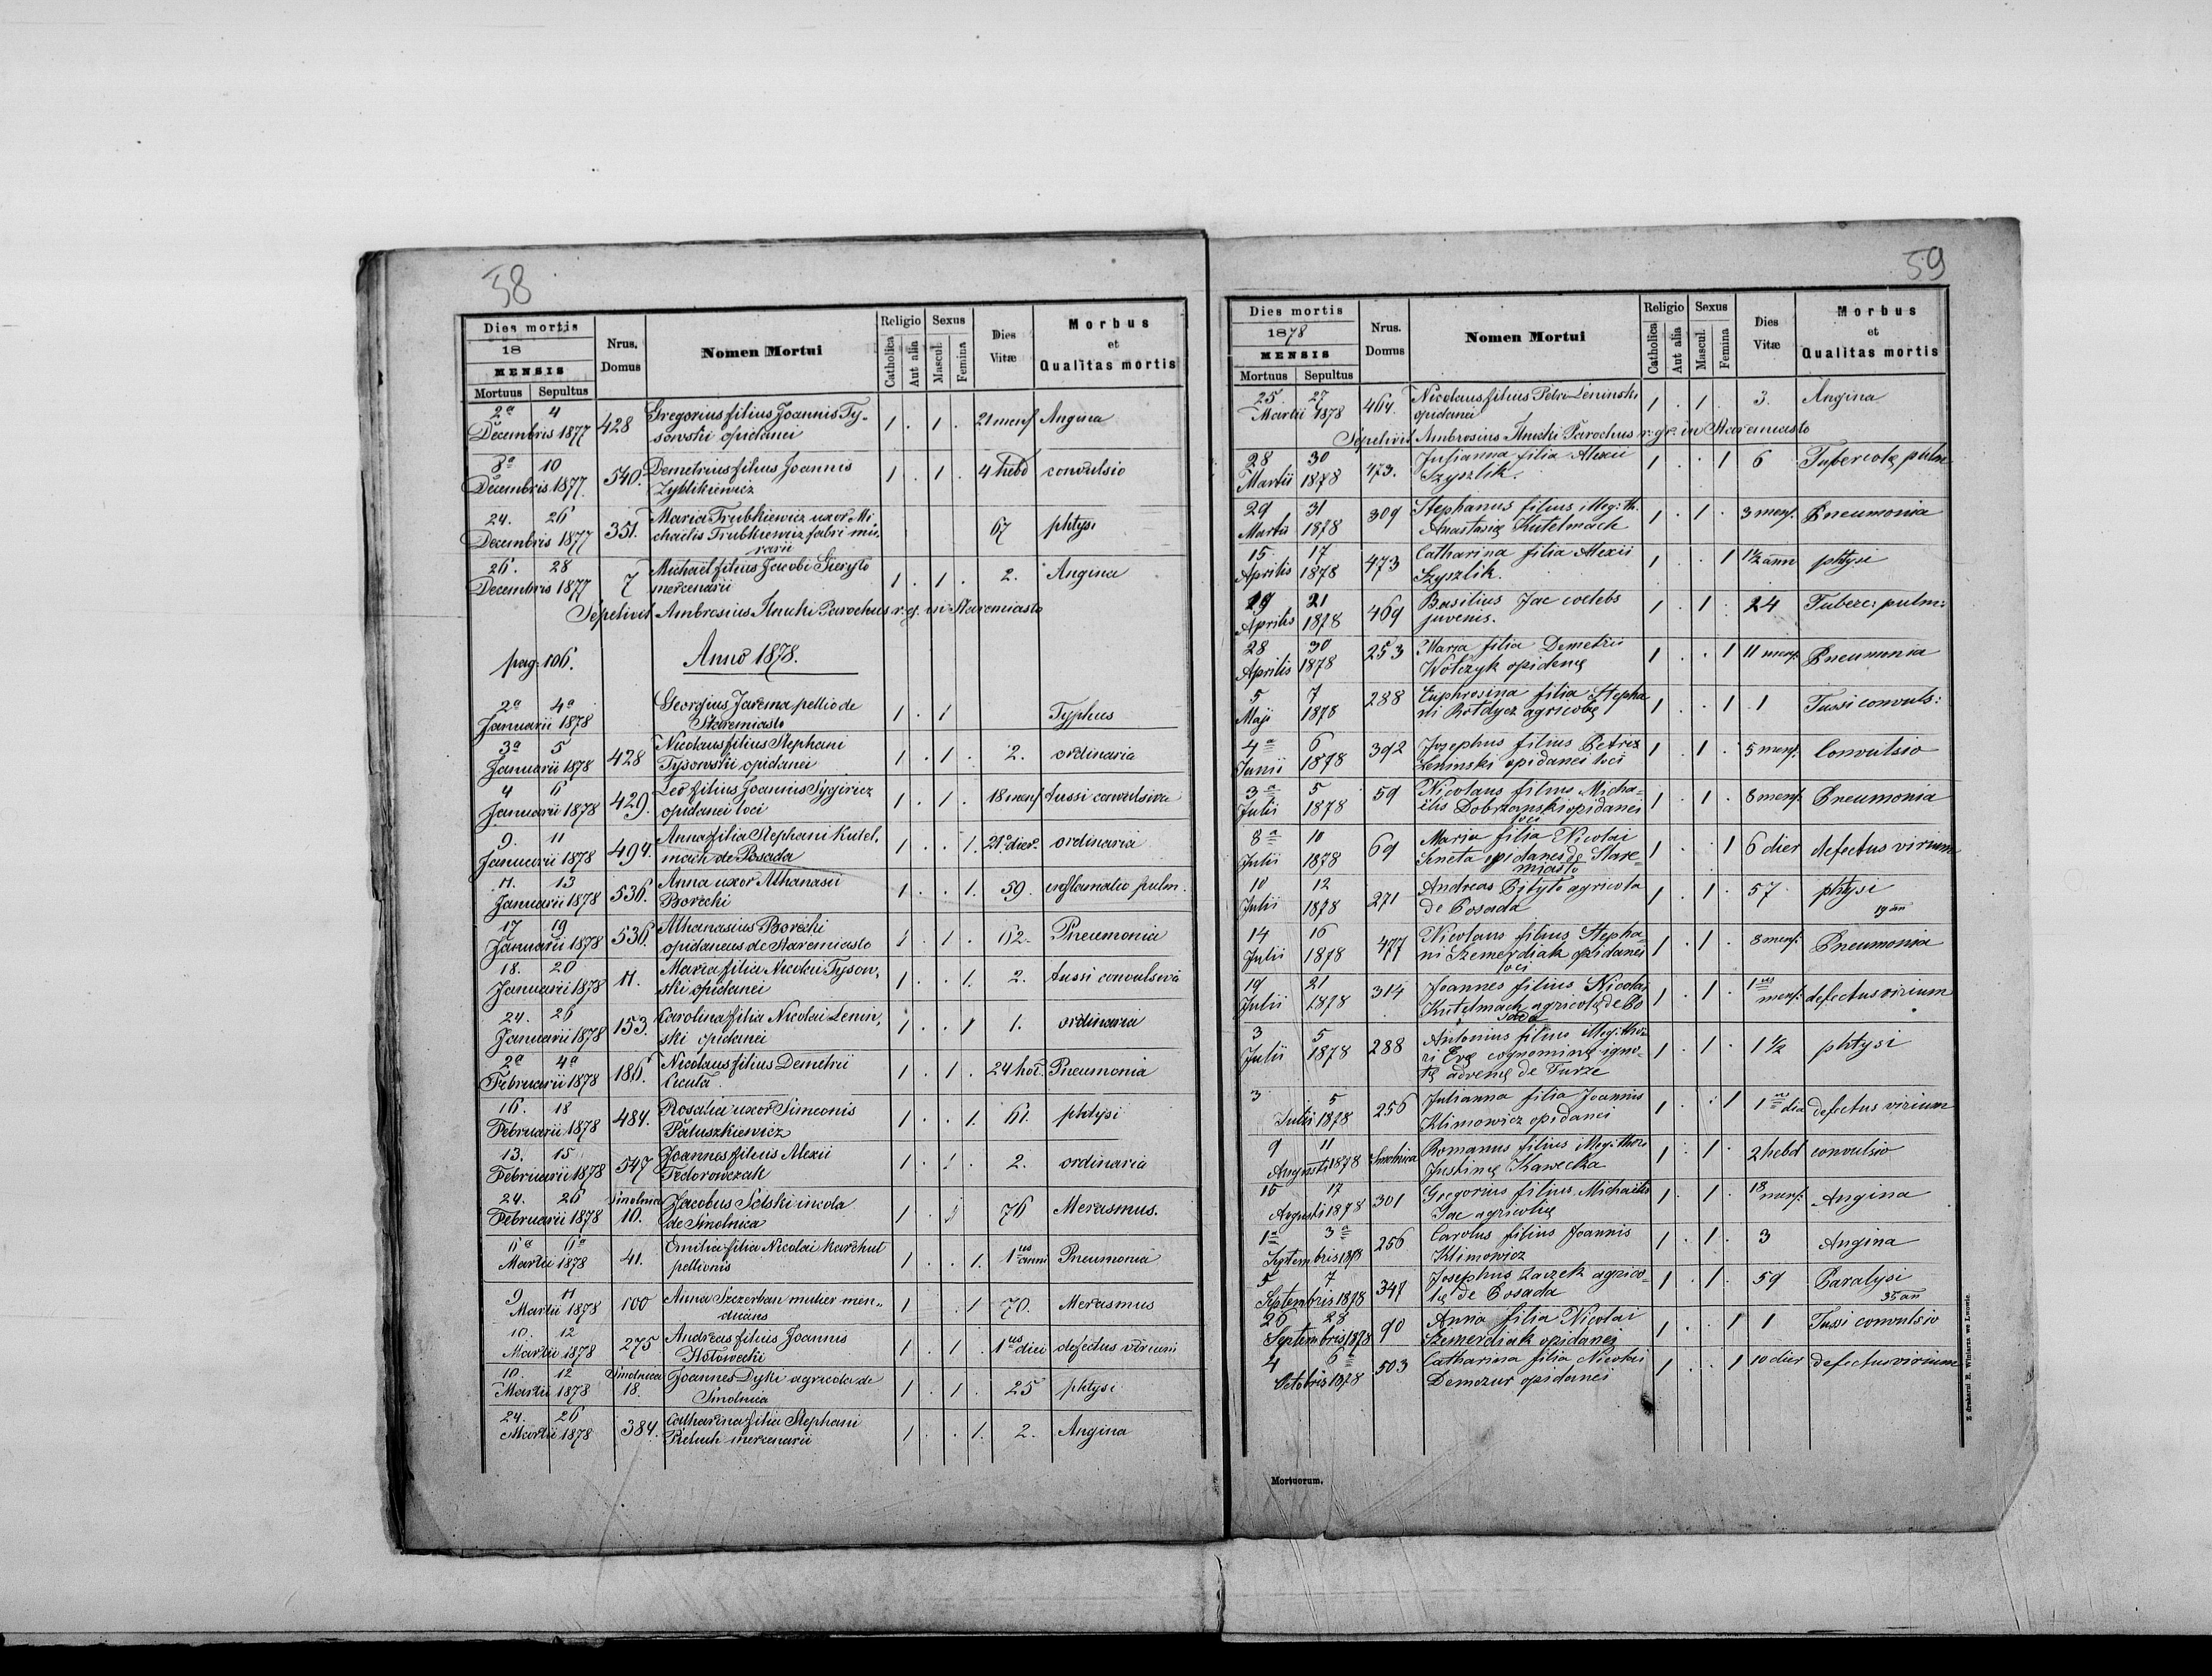 58
Dies mortis
18
MENSIS
Mortuus Sepultus
Nrus. Domus
Nomen Mortui
Religio
Catholica
Aut alia
Sexus
Mascul.
Femina
Dies Vitæ
Morbus et Qualitas mortis
2a 4 Decembris 1877 428 Gregorius filius Joannis Ty-
sowski opidanei 1 . 1 . 21 mens Angina
8a 10 Decembris 1877. 540. Demetrius filius Joannis
Zyblikiewicz 1 . 1 . 4 hebd convulsio
24. 26 Decembris 1877 351. Maria Trubkiewicz uxor Mi-
chaelis Trubkiewicz fabri mu-
rarii 67 phtysi
26. 28 Decembris 1877 7 Michael filius Jacobi
mercenarii 1 . 1 . 2. Angina
Sepelivit Ambrosius Parochus r. g. in Staremiasto
pag. 106. Anno 1878.
2a 4a Januarii 1878 Georgius Jarema pellio de
Staremiasto 1 . 1 Typhus
3a 5 Januarii 1878 428 Nicolaus filius Stephani
Tysowski opidanei 1 . 1 . 2. ordinaria
4 6 Januarii 1878 429. Leo filius Joannis
opidanei loci 1 . 1 . 18 mens tussi convulsiva
9. 11 Januarii 1878 494. Anna filia Stephani Kutel,
mach de Posada 1 . . 1. 21 dier. ordinaria
11. 13 Januarii 1878 536. Anna uxor Athanasii
Borecki 1 . . 1. 59. inflamatio pulm.
17 19 Januarii 1878 536. Athanasius Borecki
opidaneus de Staremiasto 1 . 1 . 62. Pneumonia
18. 20 Januarii 1878 11. Maria filia Nicolai Tysow,
ski opidanei 1 . . 1. 2. tussi convulsiva
24. 26 Januarii 1878 153. Carolina filia Nicolai Lenin,
ski opidanei 1 . . 1 1. ordinaria
2a 4a Februarii 1878 186. Nicolaus filius Demetrii
Cicuta. 1 . 1 . 24 hor. Pneumonia
16. 18 Februarii 1878 484. Rosalia uxor Simeonis
Patuszkiewicz 1 . . 1. 61. phtysi
13. 15 Februarii 1878 547 Joannes filius Alexii
Fedorowczak 1 . 1 . 2. ordinaria
24. 26 Februarii 1878 Smolnica 10. Jacobus Solski incola
de Smolnica 1 . 1 76 Merasmus.
6a 6a Martii 1878 41. Emilia filia Nicolai Karchut
pellionis 1 . . 1. 1us anni Pneumonia
9 11 Martii 1878 100 Anna Szczerban mulier men,,
dicans 1 . 1 70. Merasmus
10. 12 Martii 1878 275. Andreas filius Joannis
Hołowecki 1 . 1 . 1us diei defectus virium
10. 12 Martii 1878 Smolnica 18. Joannes Dyki agricola de
Smolnica 1 . 1 . 25 phtysi
24. 26 Martii 1878 384. Catharina filia Stephani
mercenarii 1 . . 1. 2. Angina
59
Dies mortis
1878
MENSIS
Mortuus Sepultus
Nrus. Domus
Nomen Mortui
Religio
Catholica
Aut alia
Sexus
Mascul.
Femina
Dies Vitæ
Morbus et Qualitas mortis
25 27 Martii 1878 464. Nicolaus filius Petri Leninski
opidanei 1 . 1 . 3. Angina
Sepelivit Ambrosius Parochus r. gr. in Staremiasto
28 30 Martii 1878 473. Julianna filia Alexii
Szyszlik. 1 . . 1 6
29 31 Martii 1878 309 Stephanus filius illeg. th.
Anastasię Kutelmach 1 . 1 . 3 mens. Pneumonia
15 17 Aprilis 1878 473 Catharina filia Alexii
Szyszlik. 1 . . 1 1 1/2 ann phtysi
19 21 Aprilis 1878 469 Basilius Jac coelebs
juvenis. 1 . 1 . 24 Tuberc: pulm:
28 30 Aprilis 1878 253 Maria filia Demetrii
Wołczyk opidanę 1 . . 1 11 mens. Pneumonia
5 7 Maji 1878 288 Euphrosina filia Stepha
ni agricolę 1 . . 1 1 Tussi convuls:
4a 6 Junii 1878 392 Josephus filius Petri
Leninski opidanei loci 1 . 1 . 5 mens. Convulsio
3a 5 Julii 1878 59 Nicolaus filius Micha=
elis Dobrzanski opidanei
loci 1 . 1 . 8 mens. Pneumonia
8a 10 Julii 1878 69 Maria filia Nicolai
opidanei de Stare=
miasto 1 . . 1 6 dier defectus virium
10 12 Julii 1878 271 Andreas Pityło agricola
de Posada 1 . 1 . 57 phtysi
19 an
14 16 Julii 1878 477 Nicolaus filius Stepha=
ni Szemerdiak opidanei
loci 1 . 1 . 8 mens. Pneumonia
19 21 Julii 1878 314 Joannes filius Nicolai
Kutelmach agricolę de Po
sada 1 . 1 . 1us mens. defectus virium
3 5 Julii 1878 288 Antonius filius illeg: tho=
ri Evę cognominę igno=
tę advenę de Turze 1 . 1 . 1 1/2 phtysi
3 5 Julii 1878 256 Julianna filia Joannis
Klimowicz opidanei 1 . . 1 1us dia defectus virium
9 11 Augusti 1878 Smolnica Romanus filius illeg: thoro
Justinę Kawecka 1 . 1 . 2 hebd convulsio
15 17 Augusti 1878 301 Gregorius filius Michaelis
Jac agricolię 1 . 1 . 18 mens. Angina
1a 3a Septembris 1878 256 Carolus filius Joannis
Klimowicz 1 . 1 . 3 Angina
5 7 Septembris 1878 347 Josephus Zaczek agrico=
lę de Posada 1 . 1 . 59 Paralysi
35 an
26 28 Septembris 1878 90 Anna filia Nicolai
Szemerdiak opidanei 1 . . 1 1 Tussi convulsio
4 6 Octobris 1878 503 Catharina filia Nicolai
Demczur opidanei 1 . . 1 10 dier defectus virium
Mortuorum.
Z drukarni E. Winiarza we Lwowie.